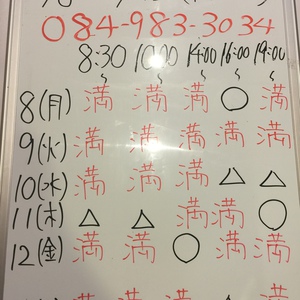 084-983-3034
8:30 10:00 14:00 16:00 19:00
〜 〜 〜 〜 〜
8(月) 満 満 満 ○ 満
9(火) 満 満 満 満 満
10(水) 満 満 満 △ △
11(木) △ △ 満 満 ○
12(金) 満 満 ○ 満 満